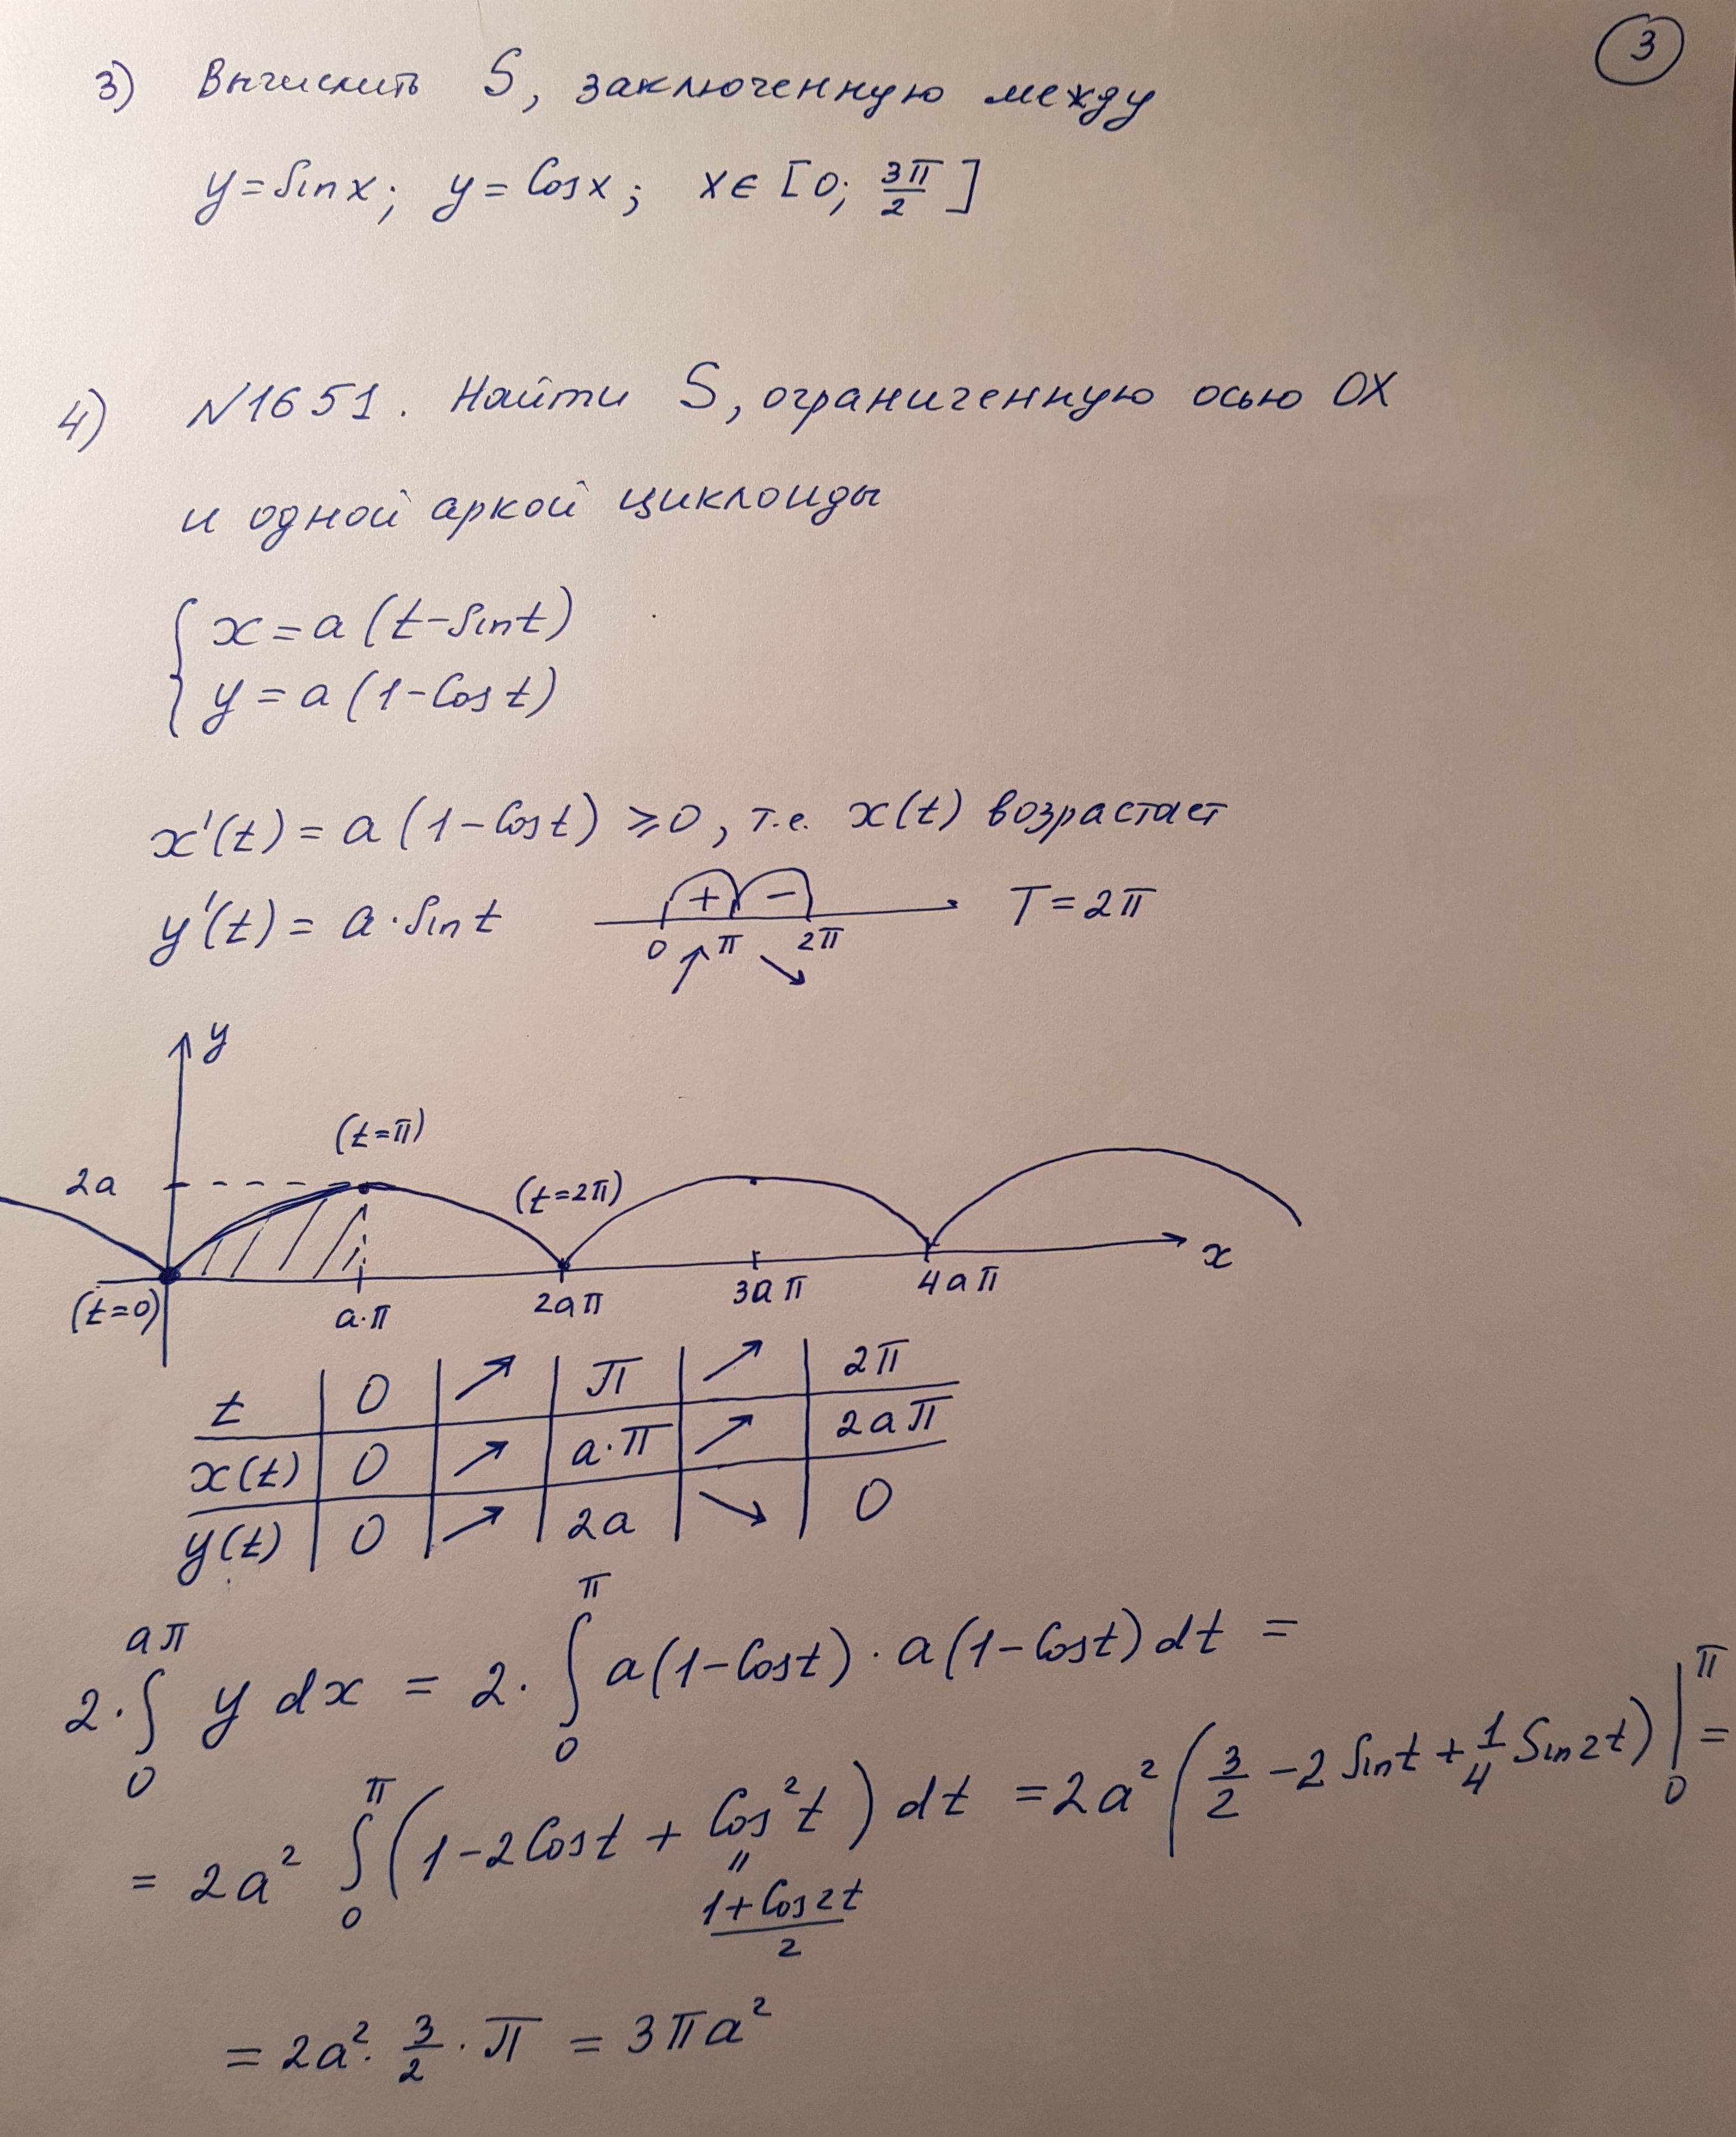 3
3) Вычислить S, заключенную между
y = Sin x; y = Cos x; x ∈ [0; 3π/2]
4) N1651. Найти S, ограниченную осью OX
и одной аркой циклоиды
{ x = a (t - Sin t)
{ y = a (1 - Cos t)
x'(t) = a (1 - Cos t) ⩾ 0, т.е. x(t) возрастает
y'(t) = a · Sin t + - T = 2π
0 ↗ π ↘ 2π
y
(t=π)
2a (t=2π)
x
(t=0) a·π 2aπ 3aπ 4aπ
t | 0 | ↗ | π | ↗ | 2π
x(t) | 0 | ↗ | a·π | ↗ | 2aπ
y(t) | 0 | ↗ | 2a | ↘ | 0
2 · ∫₀^{aπ} y dx = 2 · ∫₀^{π} a(1 - Cos t) · a(1 - Cos t) dt =
= 2a² ∫₀^{π} (1 - 2Cos t + Cos² t) dt = 2a² (3/2 - 2 Sin t + 1/4 Sin 2t) |₀^{π} =
" (1 + Cos 2t)/2
= 2a² · 3/2 · π = 3πa²